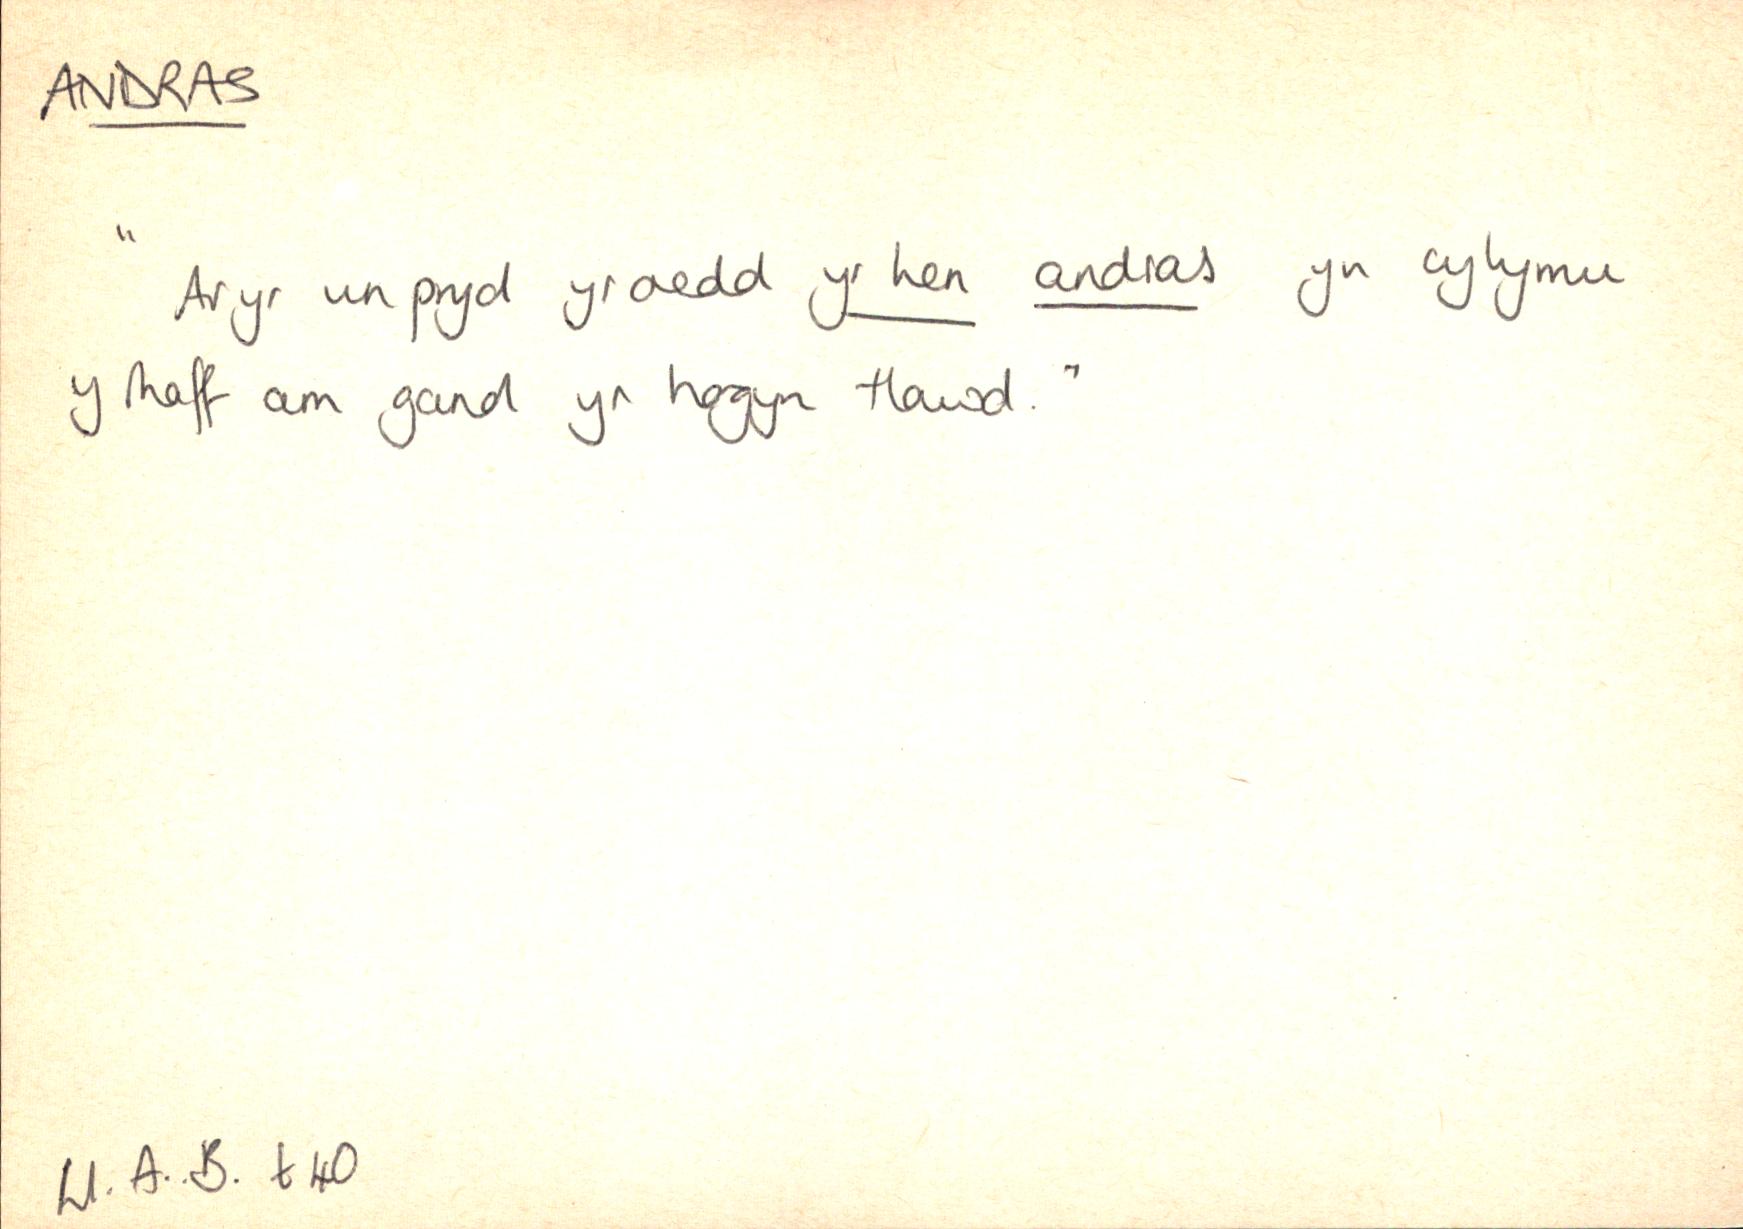 ANDRAS
"Ar yr un pryd yr oedd yr hen andras yn cylymu
y rhaff am gand yr hogyn tlawd."
Ll. A. B. t 40